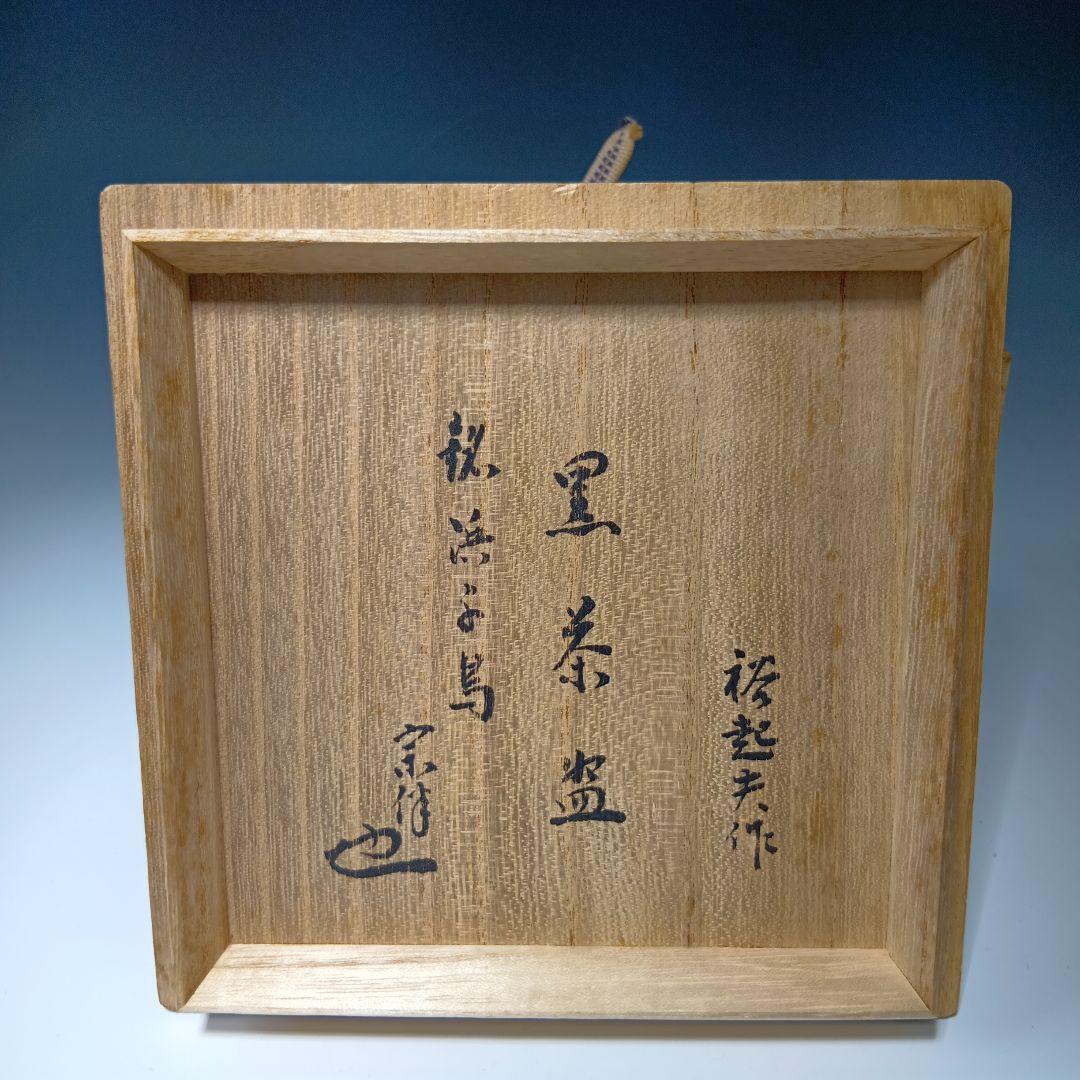 裕起夫作
黒茶盌
銘 浜千鳥
宗伴
也